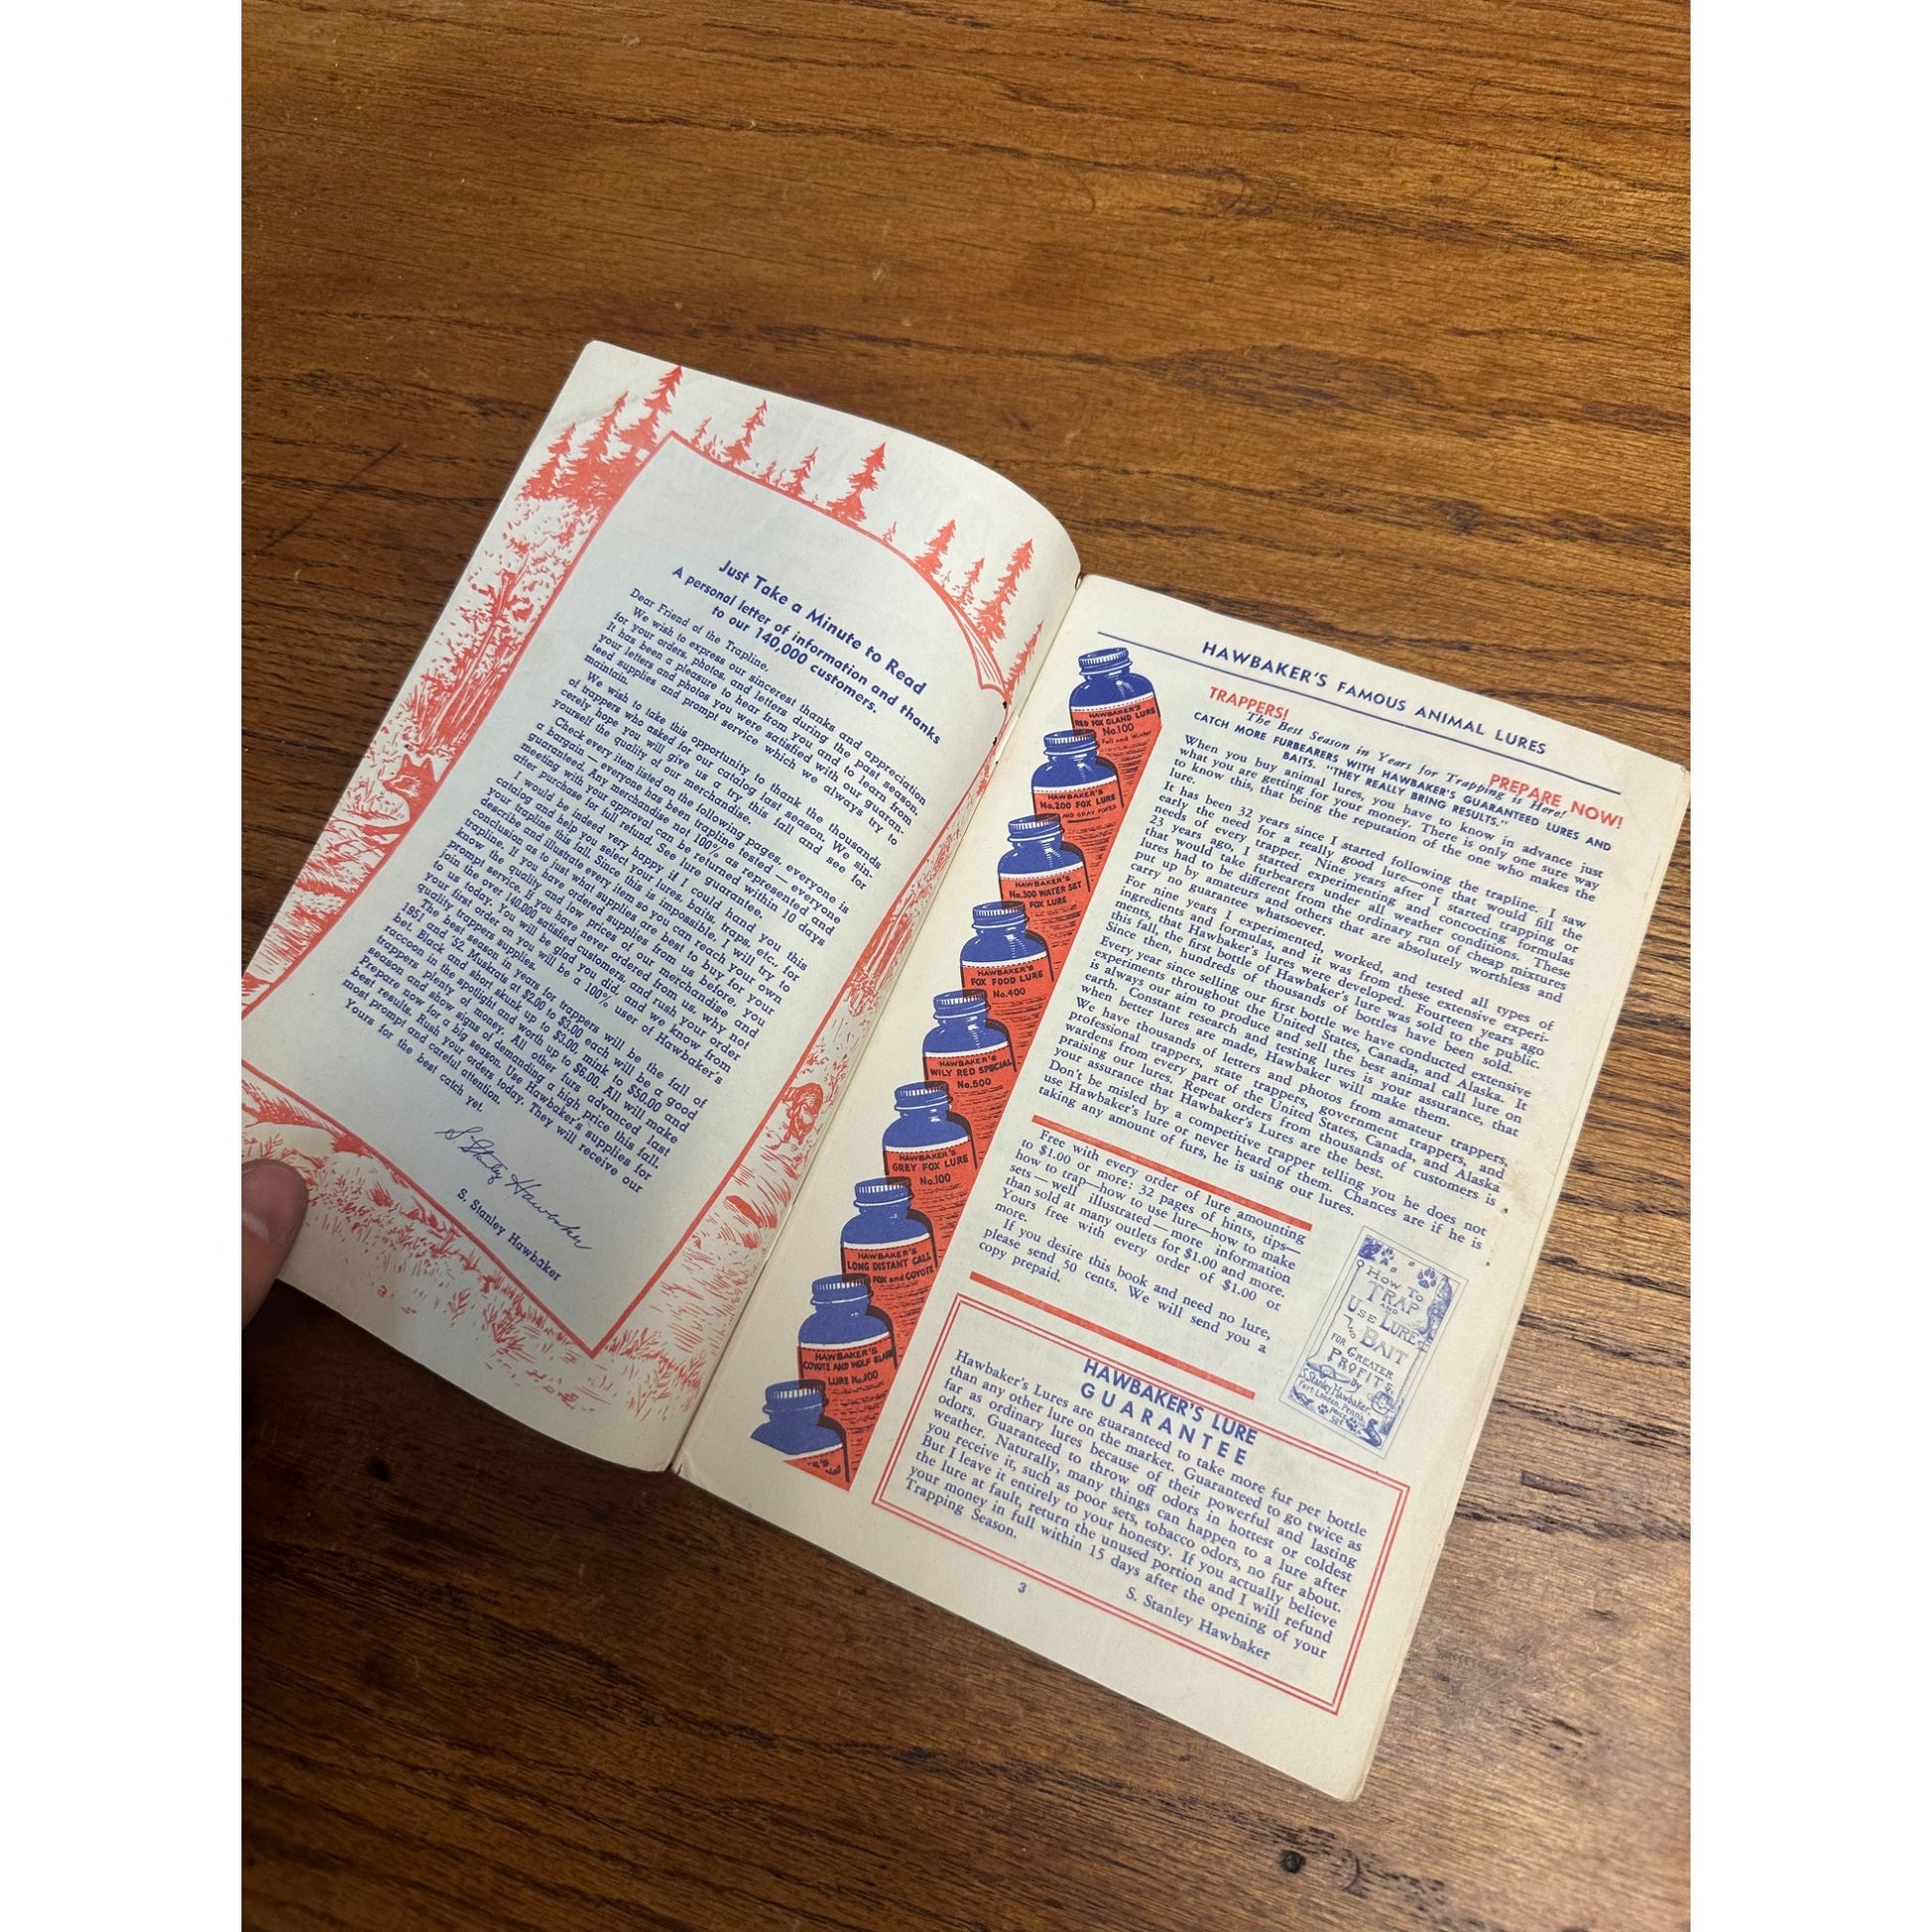 Just Take a Minute to Read
A personal letter of information and thanks
to our 140,000 customers.
Dear Friend of the Trapline,
We wish to express our sincerest thanks and appreciation
for your orders, photos, and letters during the past season.
It has been a pleasure to hear from you and to learn from
your letters and photos you were satisfied with our guaran-
teed supplies and prompt service which we always try to
maintain.
We wish to take this opportunity to thank the thousands
of trappers who asked for our catalog last season. We sin-
cerely hope you will give us a try this fall and see for
yourself the quality of our merchandise.
Check every item listed on the following pages, everyone is
a bargain — everyone has been trapline tested — everyone
guaranteed. Any merchandise not 100% as represented and
meeting with your approval can be returned within 10 days
after purchase for full refund. See lure guarantee.
I would be indeed very happy if I could hand you this
catalog and help you select your lures, baits, traps, etc., for
your trapline this fall. Since this is impossible, I will try to
describe and illustrate every item so you can reach your own
conclusion as to just what supplies are best to buy for your
trapline. If you have ordered supplies from us before, you
know the quality and low prices of our merchandise and
prompt service. If you have never ordered from us, why not
join the over 140,000 satisfied customers, and rush your order
to us today. You will be glad you did, and we know from
your first order on you will be a 100% user of Hawbaker's
quality trappers supplies.
The best season in years for trappers will be the fall of
1951 and '52 Muskrats at $2.00 to $3.00 each will be a good
bet. Black and short skunk up to $3.00, mink to $50.00 and
raccoon in the spotlight and worth up to $6.00. All will make
trappers plenty of money. All other furs advanced last
season and show signs of demanding a high price this fall.
Prepare now for a big season. Use Hawbaker's supplies for
best results. Rush your orders today. They will receive our
most prompt and careful attention.
Yours for the best catch yet,
S. Stanley Hawbaker
S. Stanley Hawbaker
HAWBAKER'S FAMOUS ANIMAL LURES
TRAPPERS!
The Best Season in Years for Trapping is Here!
PREPARE NOW!
CATCH MORE FURBEARERS WITH HAWBAKER'S GUARANTEED LURES AND
BAITS. "THEY REALLY BRING RESULTS."
When you buy animal lures, you have to know in advance just
what you are getting for your money. There is only one sure way
to know this, that being the reputation of the one who makes the
lure.
It has been 32 years since I started following the trapline. I saw
early the need for a really good lure—one that would fill the
needs of every trapper. Nine years after I started trapping or
23 years ago, I started experimenting and concocting formulas
that would take furbearers under all weather conditions. These
lures had to be different from the ordinary run of cheap mixtures
put up by amateurs and others that are absolutely worthless and
carry no guarantee whatsoever.
For nine years I experimented, worked, and tested all types of
ingredients and formulas, and it was from these extensive experi-
ments, that Hawbaker's lures were developed. Fourteen years ago
this fall, the first bottle of Hawbaker's lure was sold to the public.
Since then, hundreds of thousands of bottles have been sold.
Every year since selling our first bottle we have conducted extensive
experiments throughout the United States, Canada, and Alaska. It
is always our aim to produce and sell the best animal call lure on
earth. Constant research and testing lures is your assurance, that
when better lures are made, Hawbaker will make them.
We have thousands of letters and photos from amateur trappers,
professional trappers, state trappers, government trappers, and
wardens from every part of the United States, Canada, and Alaska
praising our lures. Repeat orders from thousands of customers is
your assurance that Hawbaker's Lures are the best.
Don't be misled by a competitive trapper telling you he does not
use Hawbaker's lure or never heard of them. Chances are if he is
taking any amount of furs, he is using our lures.
Free with every order of lure amounting
to $1.00 or more: 32 pages of hints, tips—
how to trap—how to use lure—how to make
sets—well illustrated—more information
than sold at many outlets for $1.00 and more.
Yours free with every order of $1.00 or
more.
If you desire this book and need no lure,
please send 50 cents. We will send you a
copy prepaid.
HOW TO
TRAP
AND
USE LURE
AND
BAIT
FOR
GREATER
PROFITS
BY
S. Stanley Hawbaker
Fort Loudon, Penna.
PRICE
50¢
HAWBAKER'S LURE
GUARANTEE
Hawbaker's Lures are guaranteed to take more fur per bottle
than any other lure on the market. Guaranteed to go twice as
far as ordinary lures because of their powerful and lasting
odors. Guaranteed to throw off odors in hottest or coldest
weather. Naturally, many things can happen to a lure after
you receive it, such as poor sets, tobacco odors, no fur about.
But I leave it entirely to your honesty. If you actually believe
the lure at fault, return the unused portion and I will refund
your money in full within 15 days after the opening of your
Trapping Season.
S. Stanley Hawbaker
3
HAWBAKER'S
RED FOX GLAND LURE
No.100
Fall and Winter
HAWBAKER'S
No.200 FOX LURE
AND GRAY FOXES
HAWBAKER'S
No.300 WATER SET
FOX LURE
HAWBAKER'S
FOX FOOD LURE
No.400
HAWBAKER'S
WILY RED SPECIAL
No.500
HAWBAKER'S
GREY FOX LURE
No.100
HAWBAKER'S
LONG DISTANT CALL
FOX and COYOTE
HAWBAKER'S
COYOTE AND WOLF GLAND
LURE No.100